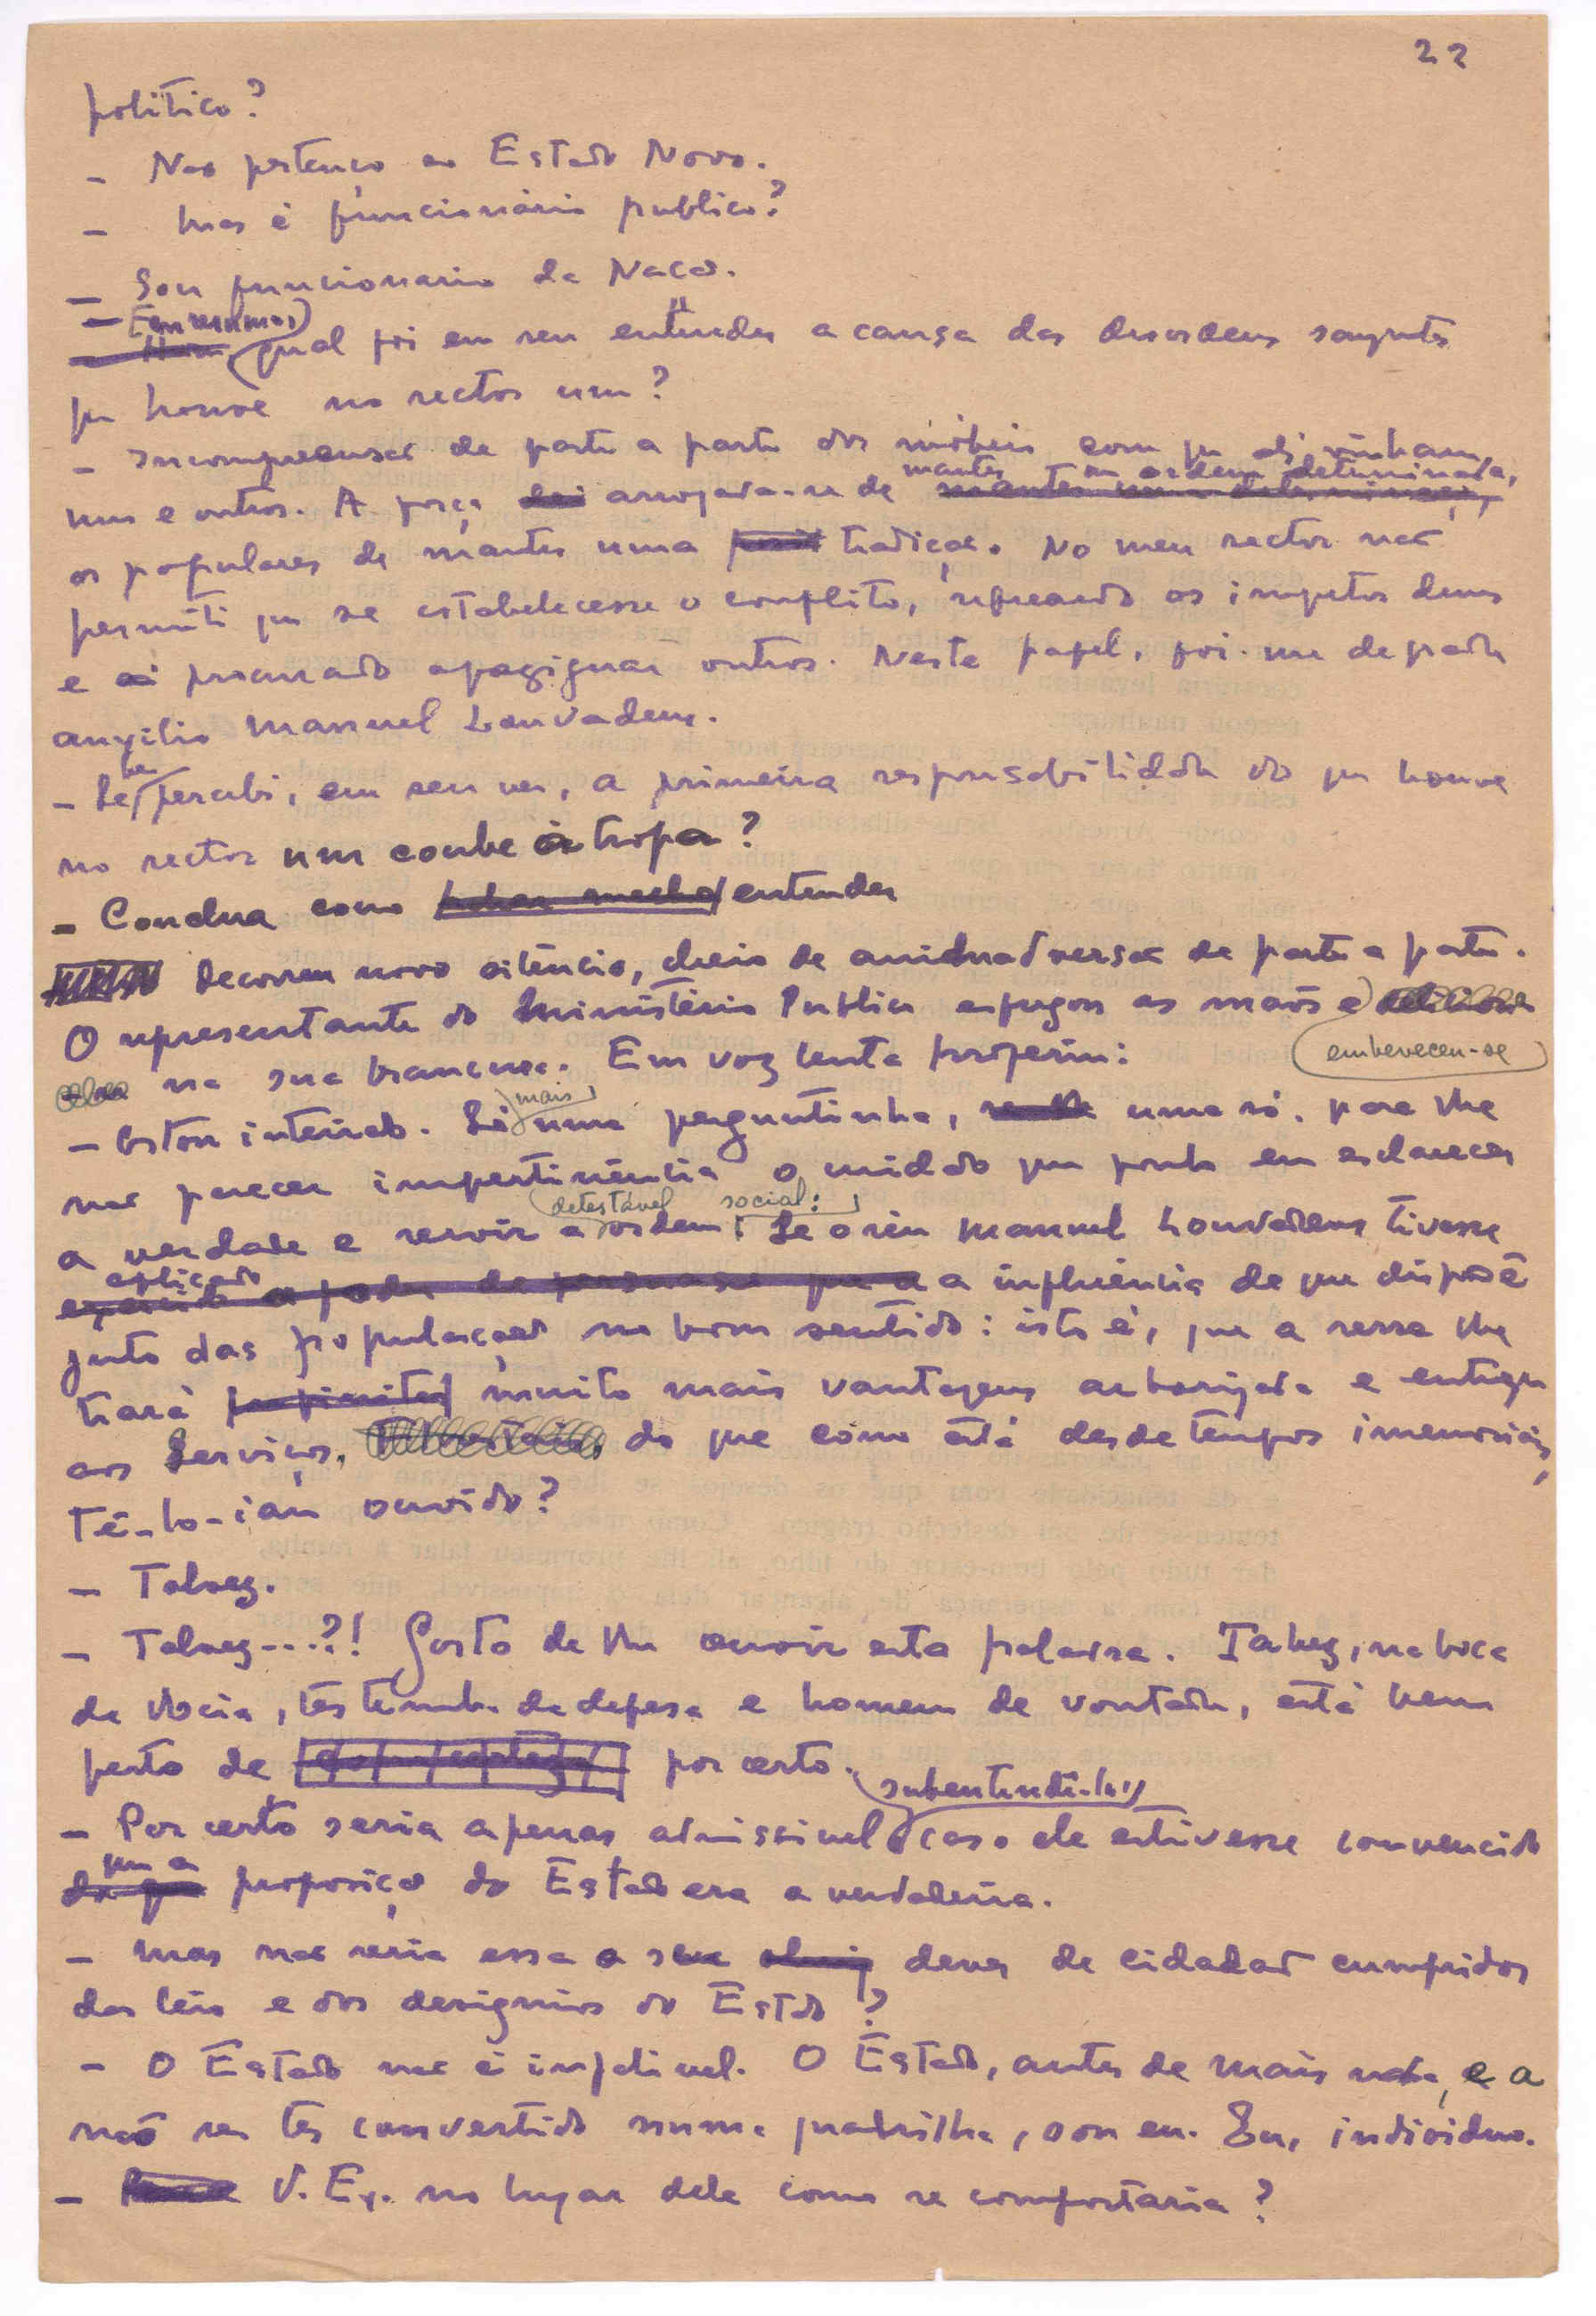 22
político?
- Não pertenço ao Estado Novo.
- Mas é funcionário publico?
- Sou funcionario da Nação.
- Em resumo, qual foi em seu entender a causa das desordens sangrentas
que houve no sector um?
- Incompreensão de parte a parte dos móbeis com que ali vinham
uns e outros. A força arrogara-se de manter a ordem determinada,
os populares de manter uma tradição. No meu sector não
permiti que se estabelecesse o conflito, refreando os impetos duns
e procurando apaziguar outros. Neste papel, foi-me de grande
auxilio Manuel Louvadeus.
- Se bem percebi, em seu ver, a primeira responsabilidade do que houve
no sector um coube à tropa?
- Conclua como entender
Decorreu novo silêncio, cheio de animadversão de parte a parte.
O representante do Ministério Publico esfregou as mãos e embeveceu-se
na sua brancura. Em voz lenta proferiu:
- Estou inteirado. Só mais uma perguntinha, uma só, para lhe
não parecer impertinência o cuidado que ponho em esclarecer
a verdade e servir a detestável ordem social: Se o réu Manuel Louvadeus tivesse
aplicado a influência de que dispõe
junto das populações no bom sentido: isto é, que a serra lhe
trará muito mais vantagens arborizada e entregue
aos Serviços, do que como está desde tempos imemoriais,
tê-lo-iam ouvido?
- Talvez.
- Talvez...?! Gosto de lhe ouvir esta palavra. Talvez, na boca
de Vocia, testemunha de defesa e homem de vontade, está bem
perto de por certo.
- Por certo seria apenas admissivel subentendê-lo, caso ele estivesse convencido
que a proposição do Estado era a verdadeira.
- Mas não seria esse o seu dever de cidadão cumpridor
das leis e dos designios do Estado?
- O Estado não é infalivel. O Estado, antes de mais nada, e a
não se ter convertido numa quadrilha, sou eu. Eu, individuo.
- V. Ex. no lugar dele como se comportaria?